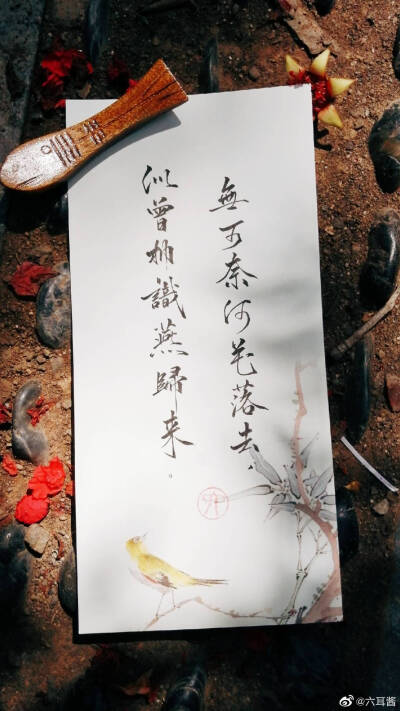 無可奈何花落去，
似曾相識燕歸来。
@六耳酱